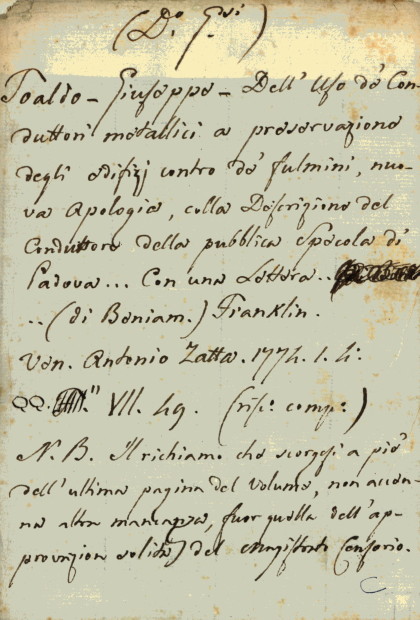 (D.º G.si)
Toaldo - Giuseppe - Dell' Uso de' Con-
duttori metallici a preservazione
degli edifizj contro de' fulmini, nuo-
va Apologia, colla Descrizione del
Conduttore della pubblica Specola di
Padova... Con una Lettera..
..(di Beniam.) Franklin.
Ven. Antonio Zatta. 1774. 1. 4.
QQ. VII. 49. (rif.º comp.º)
N. B. Il richiamo che scorgesi a piè
dell' ultima pagina del volume, non accen-
na altra mancanza, fuor quella dell' ap-
provazione solita del Magistrato Censorio.